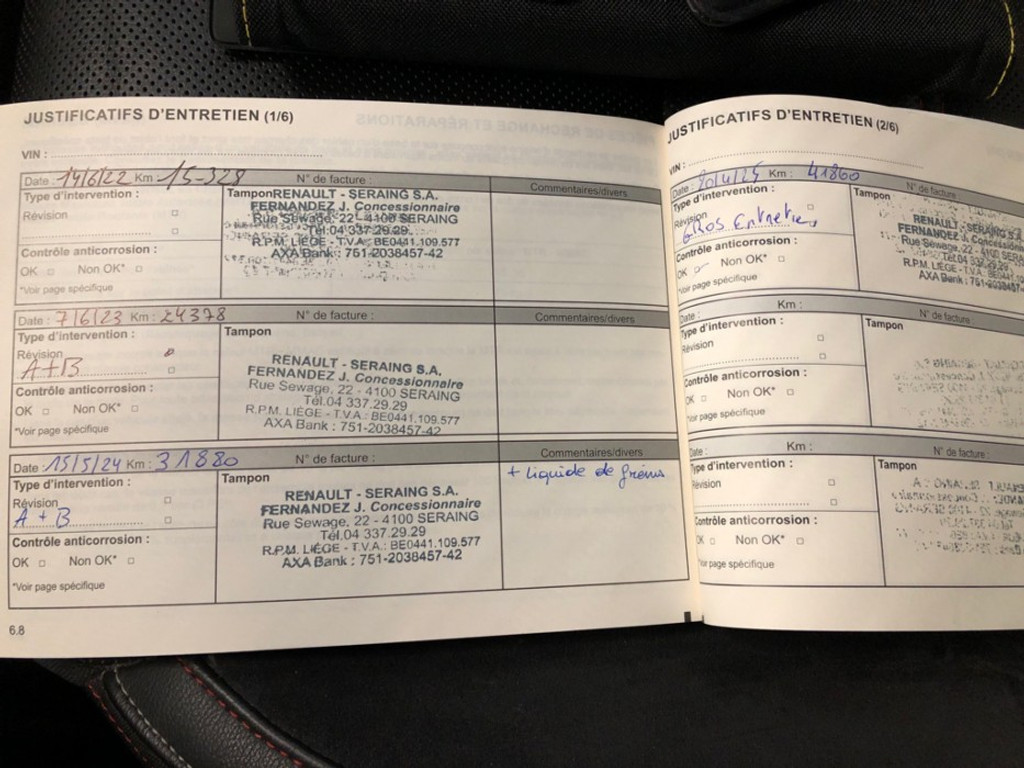 JUSTIFICATIFS D'ENTRETIEN (1/6)
VIN :
Date : 14/6/22 Km : 15-328 N° de facture : Commentaires/divers
Type d'intervention :
Révision
Contrôle anticorrosion :
OK Non OK*
*Voir page spécifique
Tampon
RENAULT - SERAING S.A.
FERNANDEZ J. Concessionnaire
Rue Sewage, 22 - 4100 SERAING
Tél.04 337.29.29
R.P.M. LIÈGE - T.V.A. : BE0441.109.577
AXA Bank : 751-2038457-42
Date : 7/6/23 Km : 24378 N° de facture : Commentaires/divers
Type d'intervention :
Révision
A+B
Contrôle anticorrosion :
OK Non OK*
*Voir page spécifique
Tampon
RENAULT - SERAING S.A.
FERNANDEZ J. Concessionnaire
Rue Sewage, 22 - 4100 SERAING
Tél.04 337.29.29
R.P.M. LIÈGE - T.V.A. : BE0441.109.577
AXA Bank : 751-2038457-42
Date : 15/5/24 Km : 31880 N° de facture : Commentaires/divers
Type d'intervention :
Révision
A + B
Contrôle anticorrosion :
OK Non OK*
*Voir page spécifique
Tampon
RENAULT - SERAING S.A.
FERNANDEZ J. Concessionnaire
Rue Sewage, 22 - 4100 SERAING
Tél.04 337.29.29
R.P.M. LIÈGE - T.V.A. : BE0441.109.577
AXA Bank : 751-2038457-42
+ liquide de freins
6.8
JUSTIFICATIFS D'ENTRETIEN (2/6)
VIN :
Date : Km : 41860 N° de facture
Type d'intervention :
Révision
GROS Entretien
Contrôle anticorrosion :
OK Non OK*
*Voir page spécifique
Tampon
RENAULT - SERAING S.A
FERNANDEZ J. Concession
Rue Sewage, 22 - 4100 SERAI
Tél.04 337.29.29
R.P.M. LIÈGE - T.V.A. : BE0441.1
AXA Bank : 751-2038457-
Date : Km : N° de facture :
Type d'intervention :
Révision
Contrôle anticorrosion :
OK Non OK*
*Voir page spécifique
Tampon
Date : Km : N° de facture :
Type d'intervention :
Révision
Contrôle anticorrosion :
OK Non OK*
*Voir page spécifique
Tampon